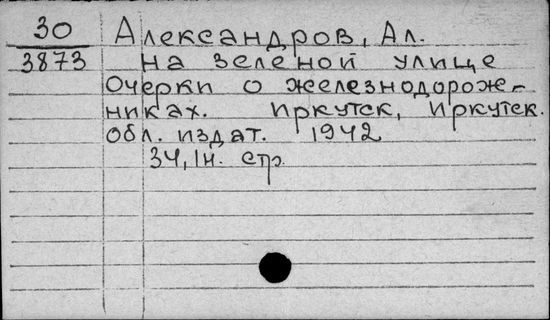 30 Александров, Ал.
3873 на зеленой улице
Очерки о железнодорож-
никах. Иркутск, Иркутск.
обл. издат. 1942
34, 1н. стр.